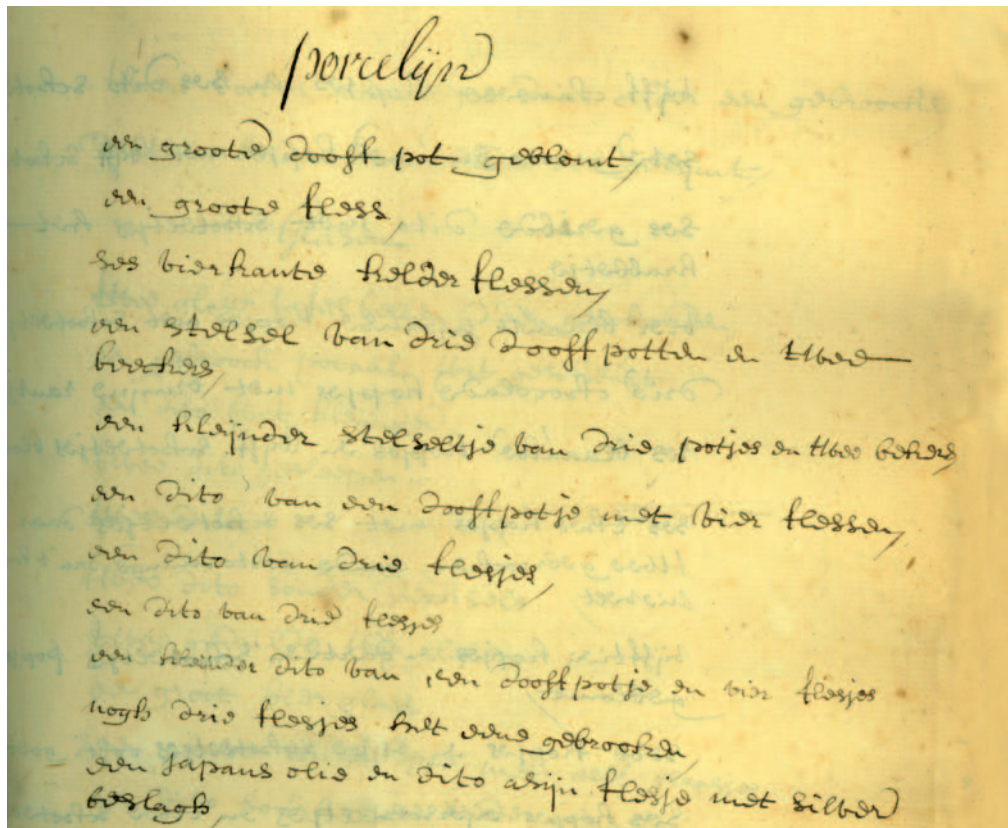 porcelijn
een groote dooft pot geblomt,
een groote fless
ses vierkante kelder flessen,
een stelsel van drie dooft potten en twee
beeckers,
een kleijnder stelseltje van drie potjes en twee bekers,
een dito van een dooft potje met vier flessen,
een dito van drie flesjes,
een dito van drie flesjes
een kleijnder dito van een dooft potje en vier flesjes
nogh drie flesjes het eene gebrooken,
een japans olie en dito asijn flesje met silver
beslagh,